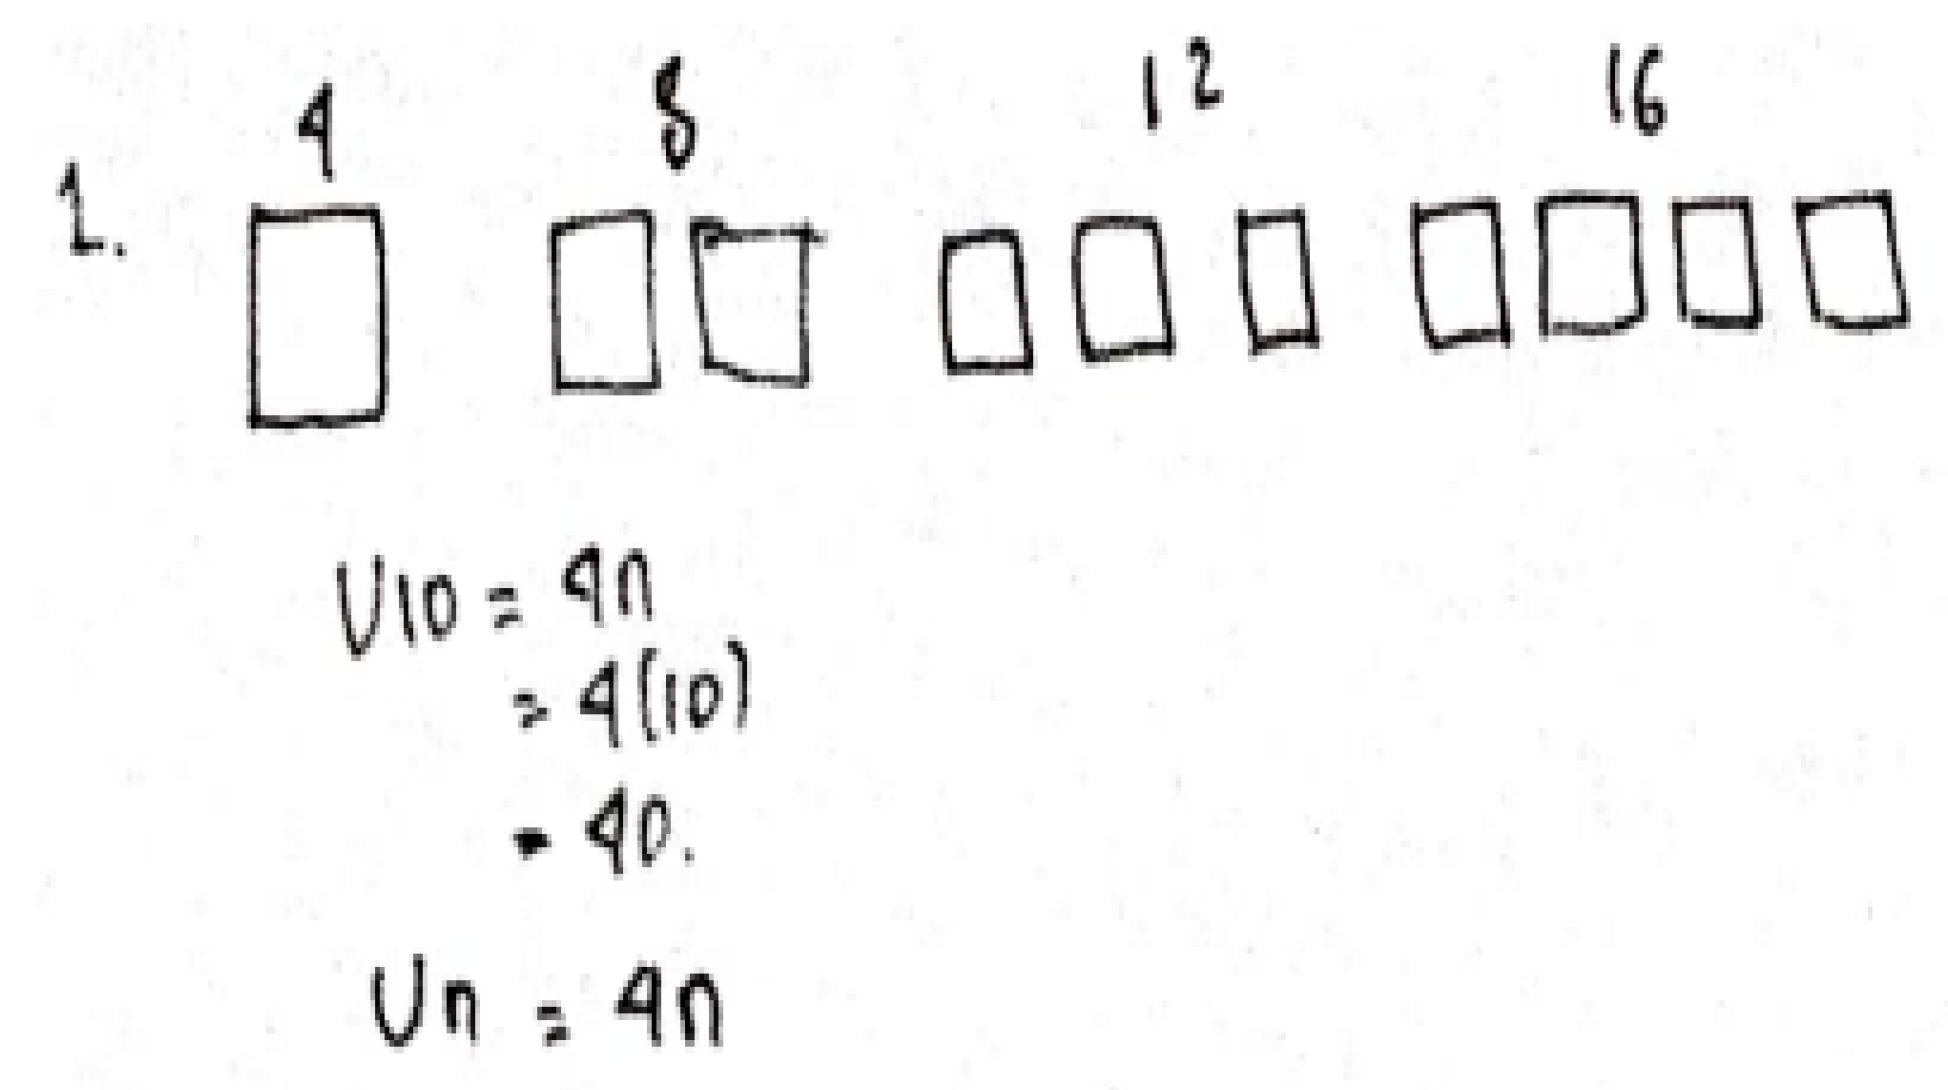 1. 4 8 12 16
U10 = 4n
= 4(10)
= 40.
Un = 4n